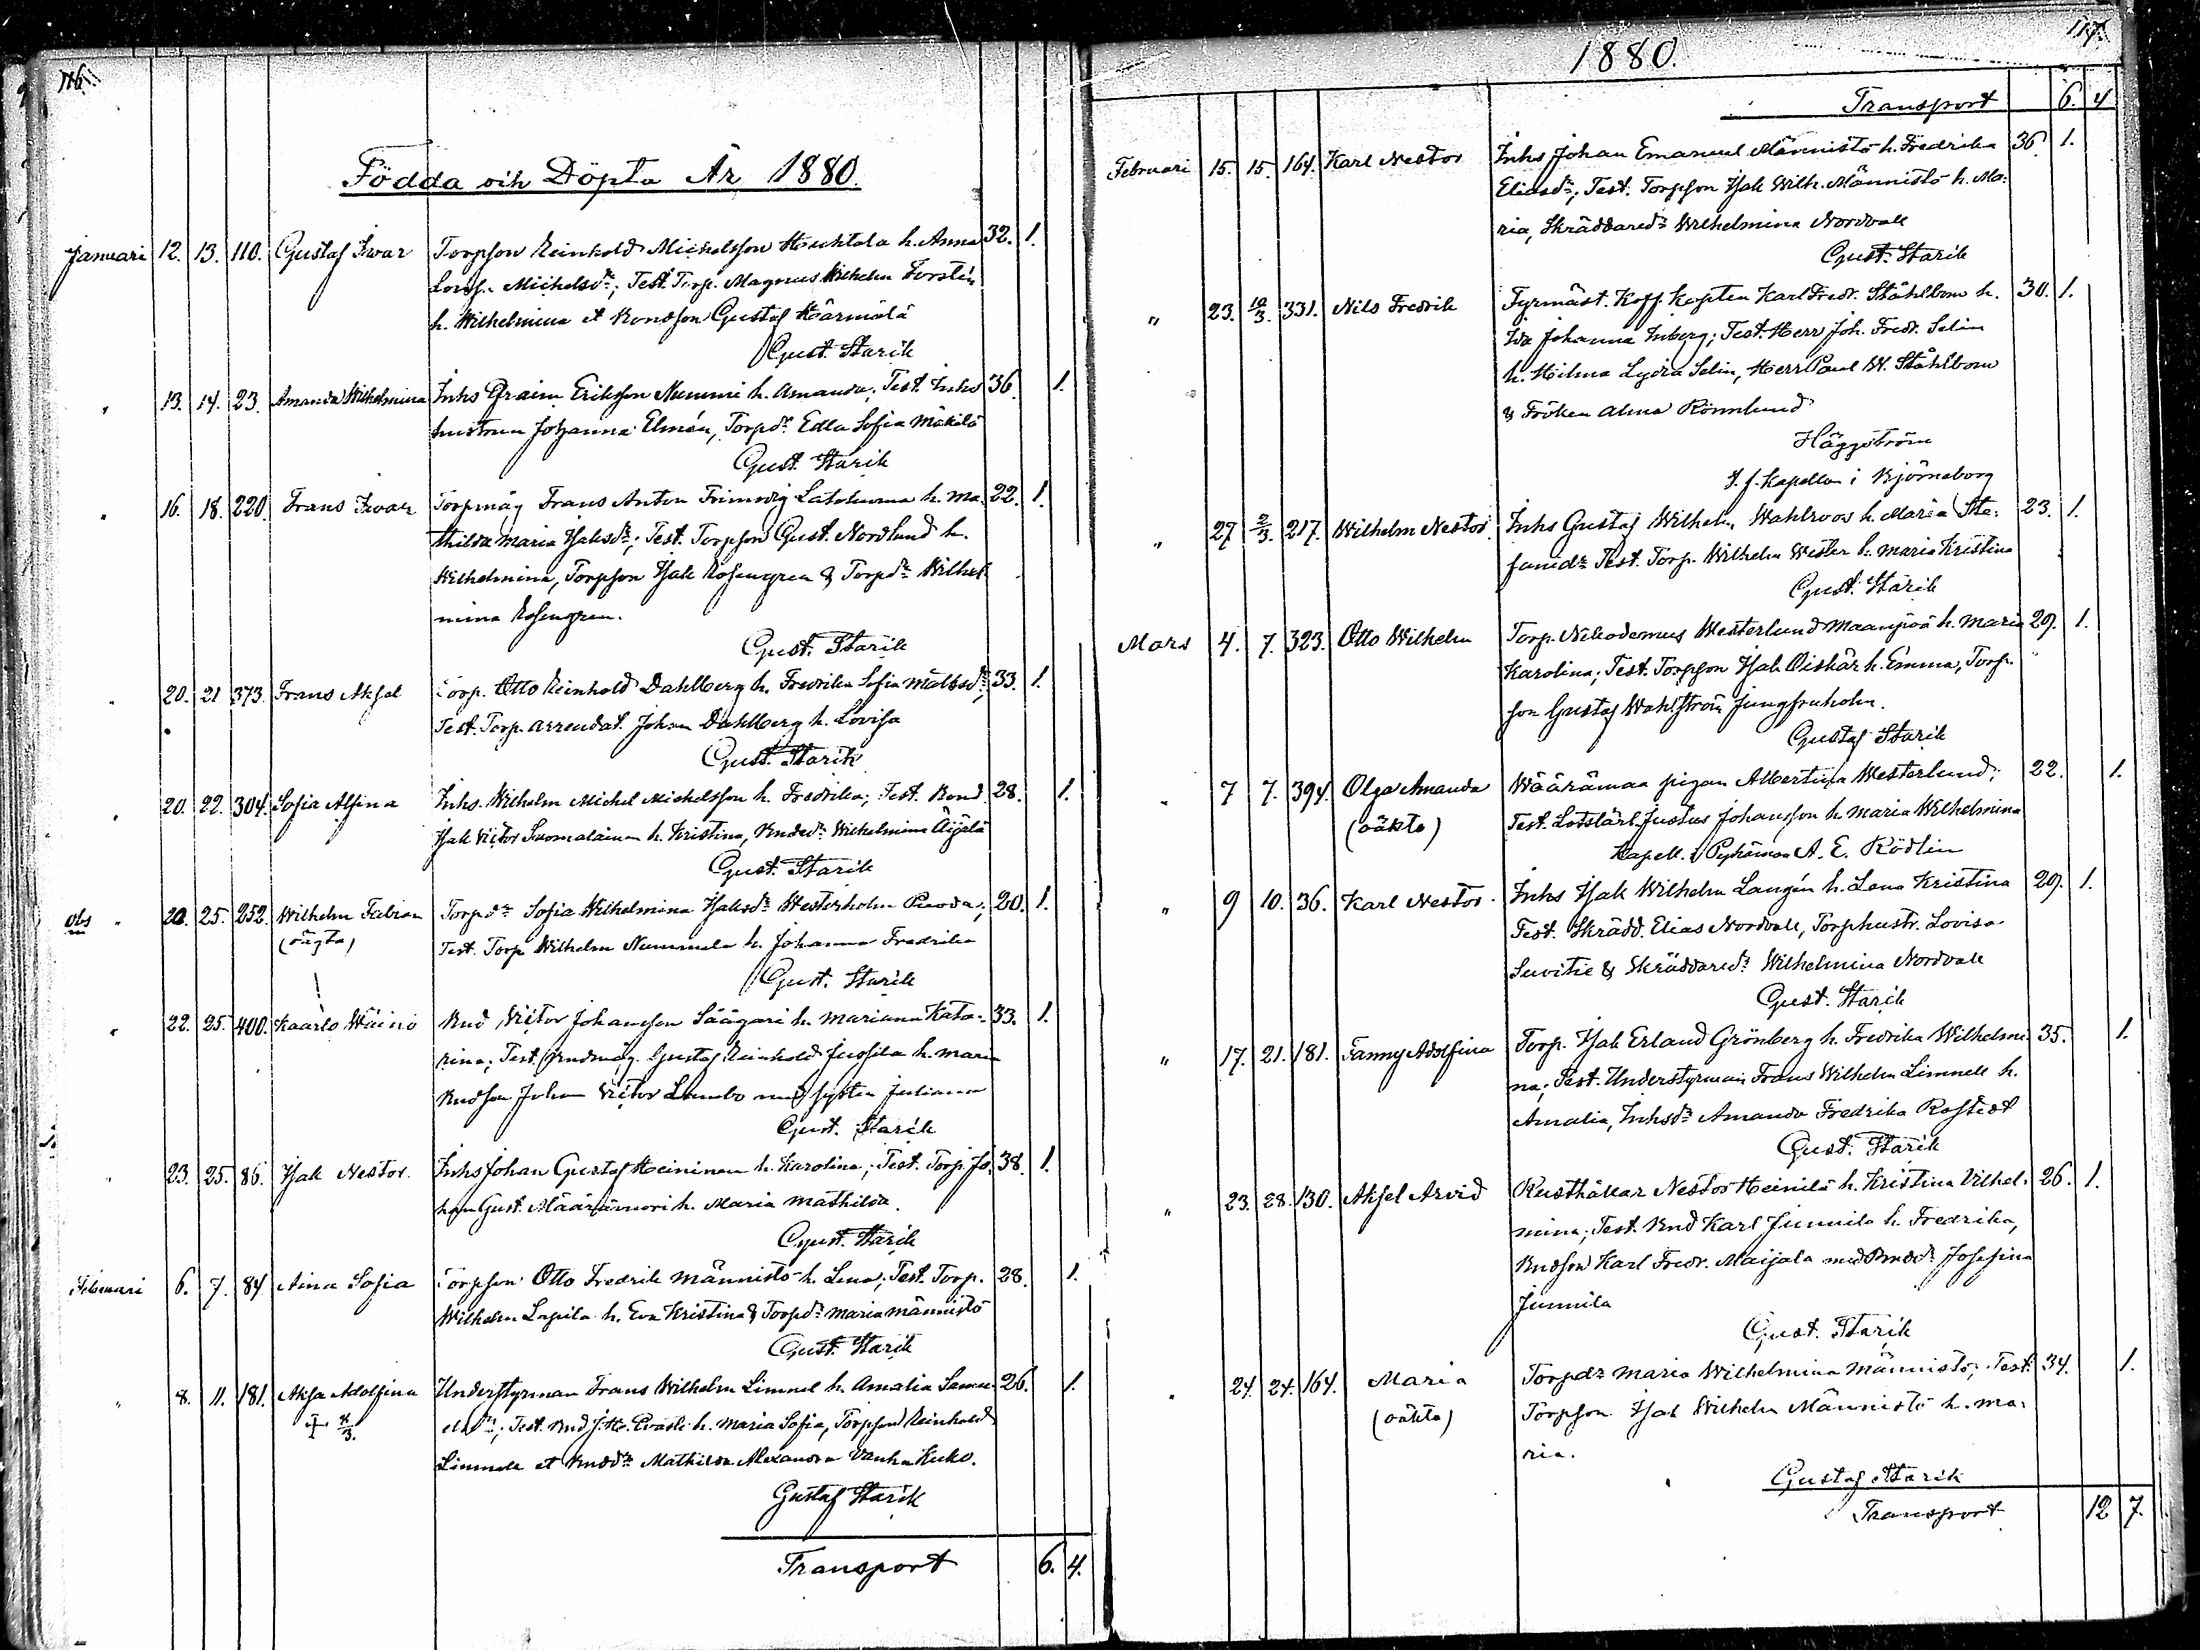 116.
Födda och Döpta År 1880.
Januari 12. 13. 110. Gustaf Iwar Torpson Reinhold Michelsson Huhtala h. Anna 32. 1.
Michelsdr; Test. Torp. Magnus Wilhelm Forstén
h. Wilhelmina et Bondson Gustaf Härmälä
Gust. Starik
" 13. 14. 23. Amanda Wilhelmina Inhs Efraim Eriksson Nummi h. Amanda; Test. Inhs 36. 1.
hustrun Johanna Elmén, Torpdr Edla Sofia Mäkilä
Gust. Starik
" 16. 18. 220. Frans Iwar Torpmåg Frans Anton h. Ma- 22. 1.
thilda Maria Isaksdr; Test. Torpson Gust. Nordlund h.
Wilhelmina, Torpson Isak Rosengren & Torpdr Wilhel-
mina Rosengren.
Gust. Starik
" 20. 21 373. Frans Aksel Torp. Otto Reinhold Dahlberg h. Fredrika Sofia Mattsdr; 33. 1.
Test. Torp. arrendat. Johan Dahlberg h. Lovisa
Gust. Starik
" 20. 22. 304. Sofia Alfina Inhs. Wilhelm Michel Michelsson h. Fredrika; Test. Bond 28. 1.
Isak Victor Suomalainen h. Kristina, Bndedr Wilhelmina Äijälä
Gust. Starik
obs " 20. 25. 252. Wilhelm Fabian Torpdr Sofia Wilhelmina Isaksdr Westerholm 20. 1.
(oägta) Test. Torp Wilhelm Nummela h. Johanna Fredrika
Gust. Starik
" 22. 25. 400. Kaarlo Wäinö Bnd Victor Johansson Säägari h. Mariana Kata- 33. 1.
rina; Test. Bndmåg. Gustaf Reinhold Jussila h. Maria
Bndson Johan Victor Lambo med syster Juliana
Gust. Starik
" 23. 25. 86. Isak Nestor. Inhs Johan Gustaf Heininen h. Karolina; Test. Torp. Jo- 38. 1.
han Gust. h. Maria Mathilda.
Gust. Starik
Februari 6. 7. 84 Aina Sofia Torpson Otto Fredrik Männistö h. Lena; Test. Torp. 28. 1.
Wilhelm Lapila h. Eva Kristina & Torpdr Maria Männistö
Gust. Starik
" 8. 11. 181. Aksa Adolfina Understyrman Frans Wilhelm Limnel h. Amalia Samu- 26. 1.
† 8/3. elsdr; Test. Bnd J. H. h. Maria Sofia, Torpson Reinhold
Limnell et Bnddr Mathilda Alexandra Vanha Kuko.
Gustaf Starik
Transport 6. 4.
117.
1880.
Transport 6. 4
Februari 15. 15. 164. Karl Nestor Inhs Johan Emanuel Männistö h. Fredrika 36. 1.
Eliasdr; Test. Torpson Isak Wilh. Männistö h. Ma-
ria, Skräddaredr Wilhelmina Nordvall
Gust. Starik
" 23. 10/3. 331. Nils Fredrik Fyrmäst. Koff. Kapten Karl Fredr. Ståhlbom h. 30. 1.
Ida Johanna Inberg; Test. Herr Joh. Fredr. Selin
h. Hilma Lydia Selin, Herr Paul W. Ståhlbom
& Fröken Alma Rönnlund
Häggström
T. f. Kapellan i Björneborg
" 27 2/3. 217. Wilhelm Nestor Inhs Gustaf Wilhelm Wahlroos h. Maria Ste- 23. 1.
fansdr Test. Torp. Wilhelm Wester h. Maria Kristina
Gust. Starik
Mars 4. 7. 323. Otto Wilhelm Torp. Nikodemus Westerlund Maanpää h. Maria 29. 1.
Karolina; Test. Torpson Isak Oiskär h. Emma, Torp-
son Gustaf Wahlström Jungfruholm.
Gustaf Starik
" 7 7. 394. Olga Amanda Wäärämaa pigan Albertina Westerlund; 22. 1.
(oäkta) Test. Lotslärl. Justus Johansson h. Maria Wilhelmina
Kapell. i Pyhämaa A. E. Rödlin
" 9 10. 36. Karl Nestor. Inhs Isak Wilhelm Langén h. Lena Kristina 29. 1.
Test. Skrädd. Elias Nordvall, Torphustr. Lovisa
Suvitie & Skräddaredr Wilhelmina Nordvall
Gust. Starik
" 17. 21. 181. Fanny Adolfina Torp. Isak Erland Grönberg h. Fredrika Wilhelmi- 35. 1.
na; Test. Understyrman Frans Wilhelm Limnell h.
Amalia, Inhsdr Amanda Fredrika Rostedt
Gust. Starik
" 23. 28. 130. Aksel Arvid Rusthållar Nestor Heinilä h. Kristina Vilhel- 26. 1.
mina; Test. Bnd Karl Junnila h. Fredrika,
Bndson Karl Fredr. Maijala med Bnddr Josefina
Junnila
Gust. Starik
" 24. 24. 164. Maria Torpdr Maria Wilhelmina Männistö; Test. 34. 1.
(oäkta) Torpson Isak Wilhelm Männistö h. Ma-
ria.
Gustaf Starik
Transport 12 7.